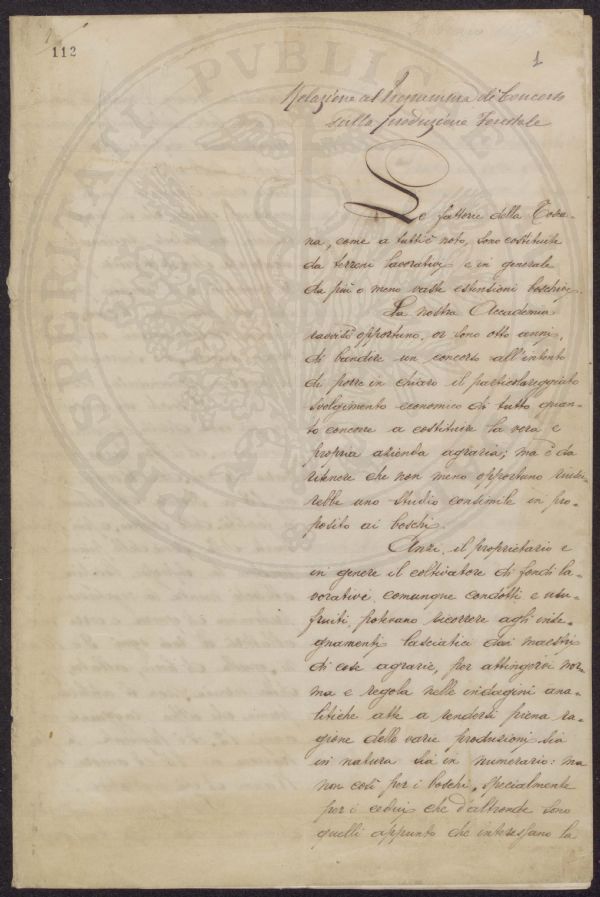 112
1
PVBLICAE
PROSPERITATI
Relazione al Programma di Concorso
sulla produzione Forestale
Le fattorie della Tosca-
na, come a tutti è noto, sono costituite
da terreni lavorativi e in generale
da più o meno vaste estensioni boschive.
La nostra Accademia
ravvisò opportuno, or sono otto anni,
di bandire un concorso all'intento
di porre in chiaro il particolareggiato
svolgimento economico di tutto quan-
to concorre a costituire la vera e
propria azienda agraria; ma è da
ritenere che non meno opportuno riusci-
rebbe uno studio consimile in pro-
posito ai boschi.
Anzi, il proprietario e
in genere il coltivatore di fondi la-
vorativi, comunque condotti e usu-
fruiti, potevano ricorrere agli inse-
gnamenti lasciatici dai maestri
di cose agrarie, per attingervi nor-
ma e regola nelle indagini ana-
litiche atte a rendersi piena ra-
gione delle varie produzioni sia
in natura sia in numerario: ma
non così per i boschi, specialmente
per i cedui che d'altronde sono
quelli appunto che interessano la